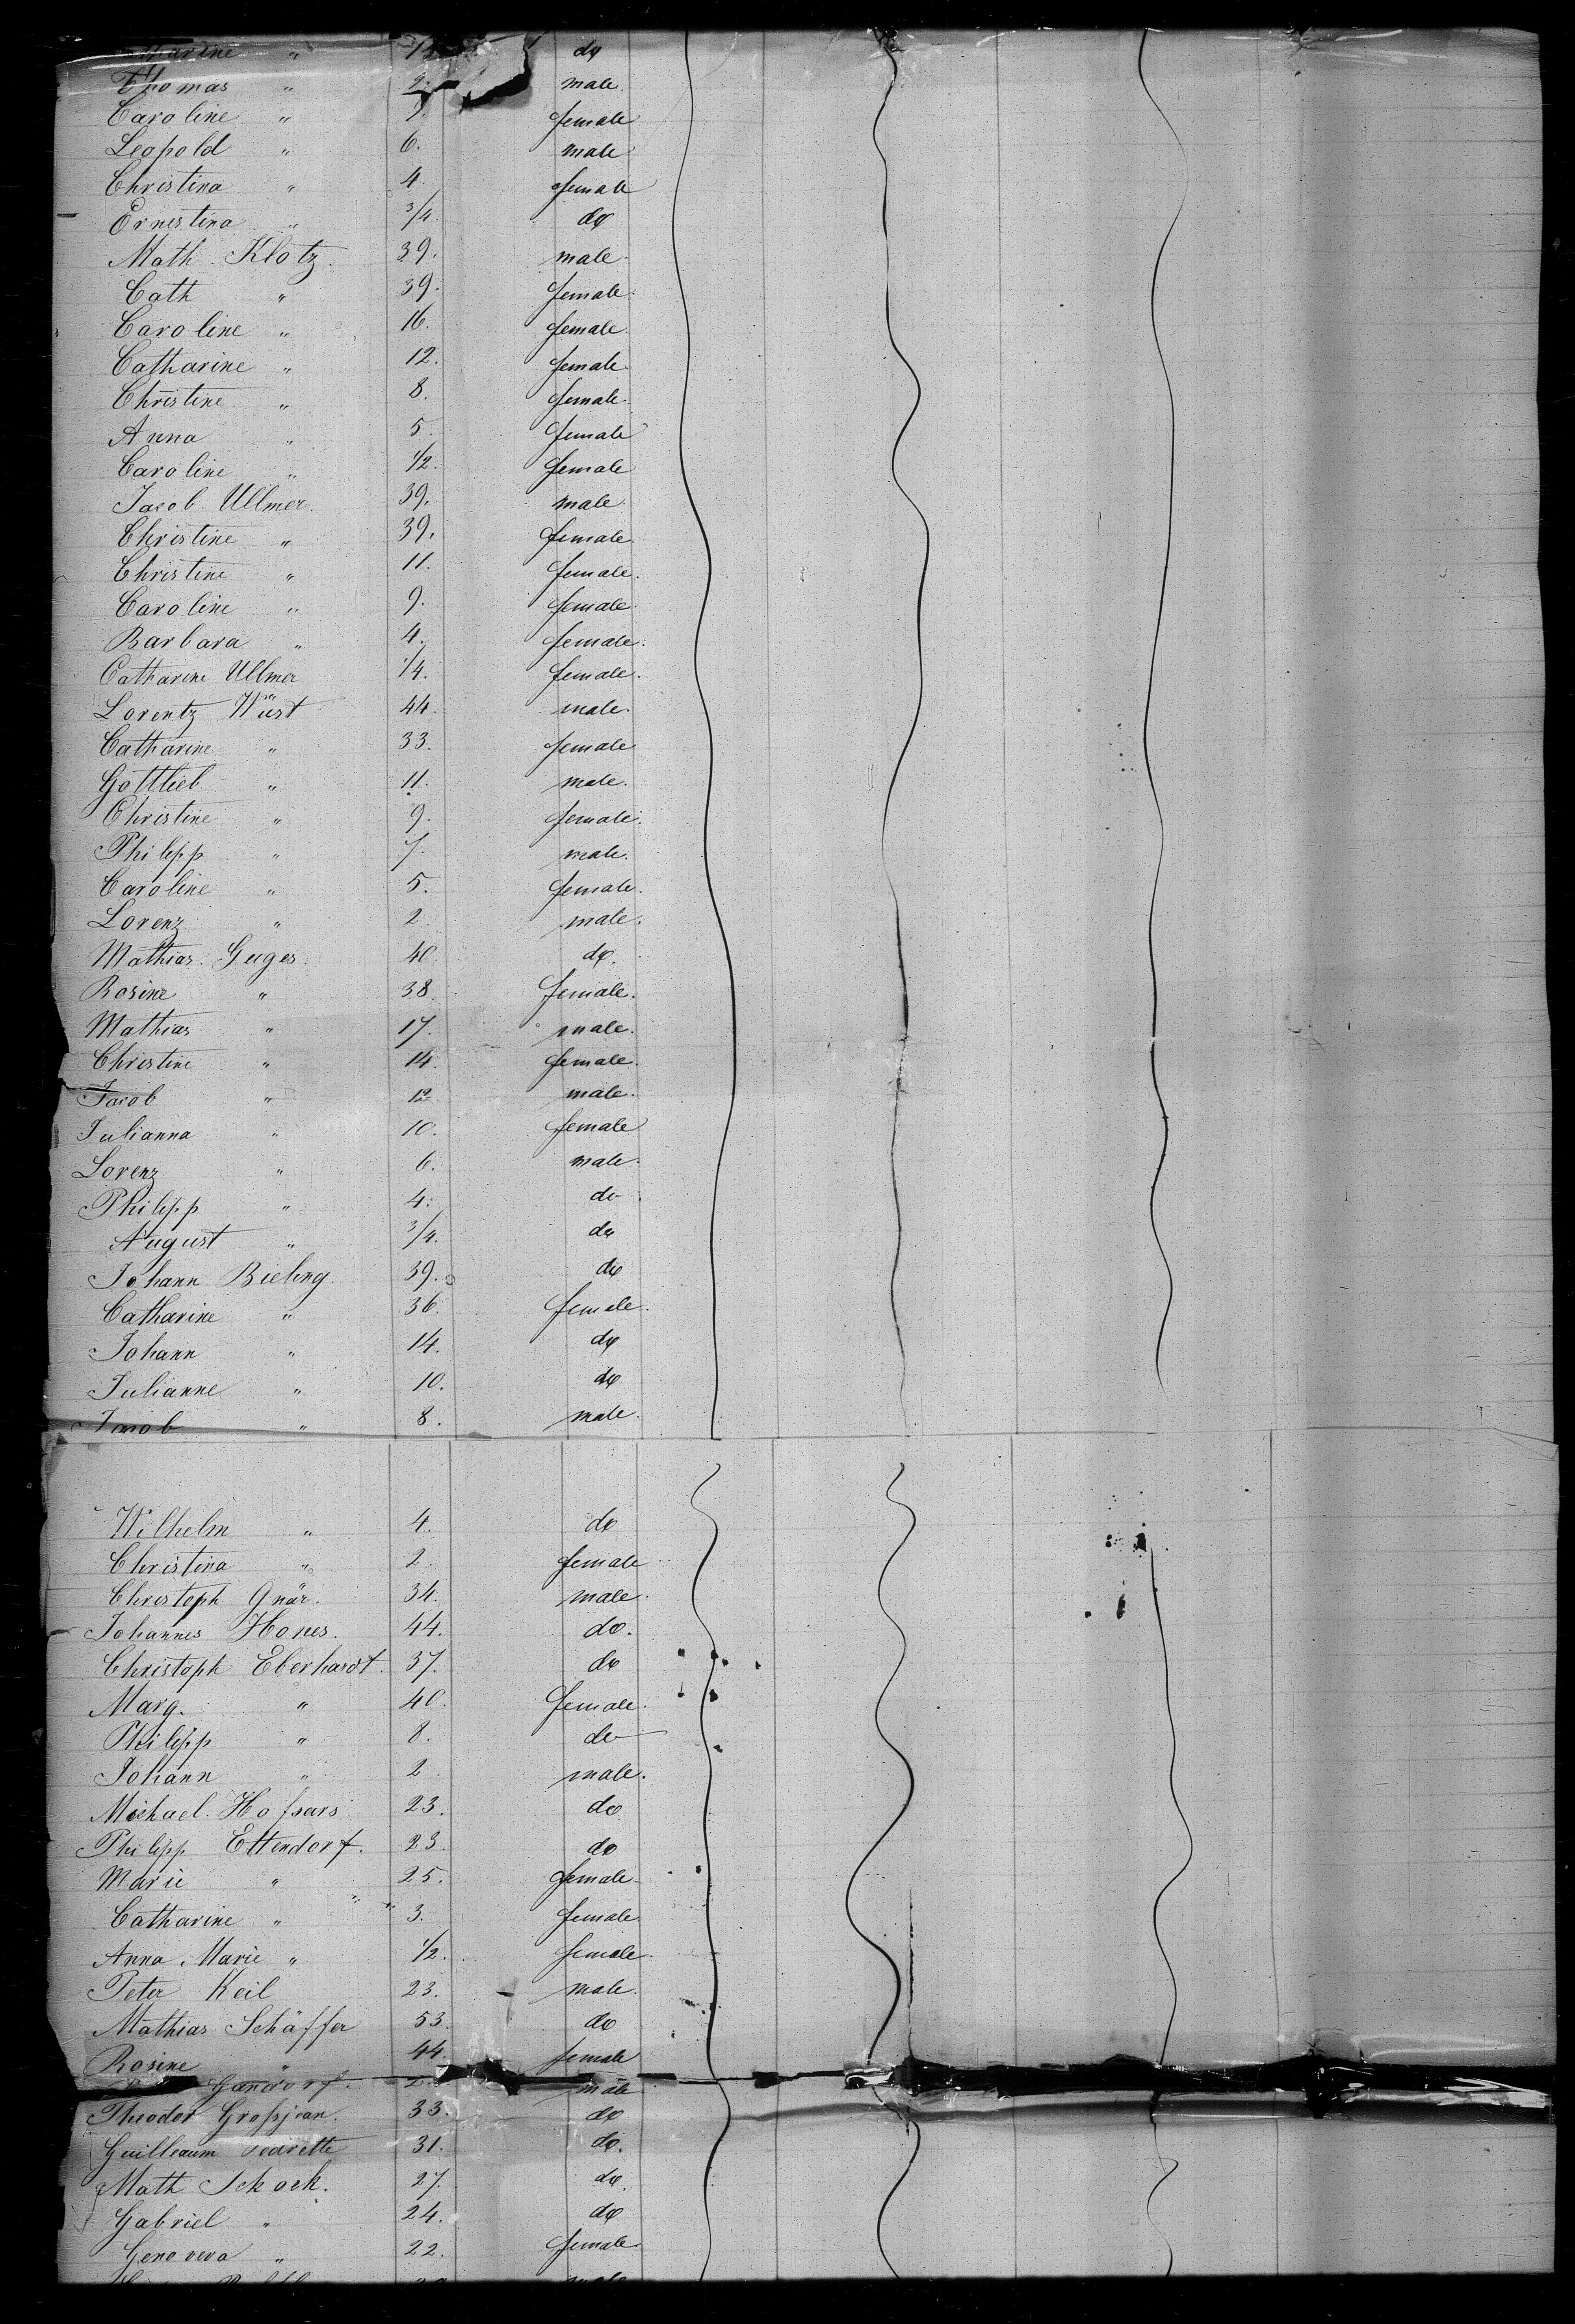 Catharine " do
Thomas " 2. male.
Caroline " female
Leopold " 6. male
Christina " 4. female
Ernestina " 3/4. do
Math. Klotz. 39. male.
Cath " 39. female.
Caroline " 16. female.
Catharine " 12. female.
Christine " 8. female.
Anna " 5. female
Caroline " 1/2. female
Jacob Ullmer. 39. male.
Christine " 39. female.
Christine " 11. female.
Caroline " 9. female.
Barbara " 4. female.
Catharine Ullmer 1/4. female.
Lorentz Wüst 44. male.
Catharine " 33. female
Gottlieb " 11. male.
Christine " 9. female.
Philipp " 7. male.
Caroline " 5. female.
Lorenz " 2 male.
Mathias Guges. 40. do.
Rosine " 38. female.
Mathias " 17. male.
Christine " 14. female.
Jacob " 12 male.
Julianna " 10. female
Lorenz " 6. male.
Philipp " 4. do.
August " 3/4. do
Johann Bieling 39. do
Catharine " 36. female.
Johann " 14. do
Julianne " 10. do
Jacob " 8. male.
Wilhelm " 4. do
Christina " 2. female
Christoph Gnär. 34. male.
Johannes Hones. 44. do.
Christoph Eberhardt. 37. do
Marg. " 40. female.
Philipp " 8. do
Johann " 2. male.
Michael 23. do
Philipp Ettendorf. 23. do
Marie " 25. female.
Catharine " 3. female
Anna Marie " 1/2. female.
Peter Keil 23. male.
Mathias Schäffer 53. do
Rosine " 44. female
male
Theodor Grossjean. 33. do
Guilleaum 31. do.
Math Schock. 27. do.
Gabriel " 24. do
Genoveva " 22. female.